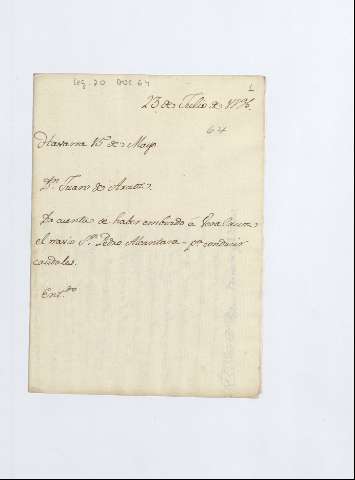 Leg. 20 Doc 64
1
23 de Julio de 1796.
64
Havana 15 de Mayo
Dn. Juan de Araoz.
Da cuenta de haber embiado a Vera Cruz
el navio Sn. Pedro Alcantara - pa. conducir
caudales.
Entdo.